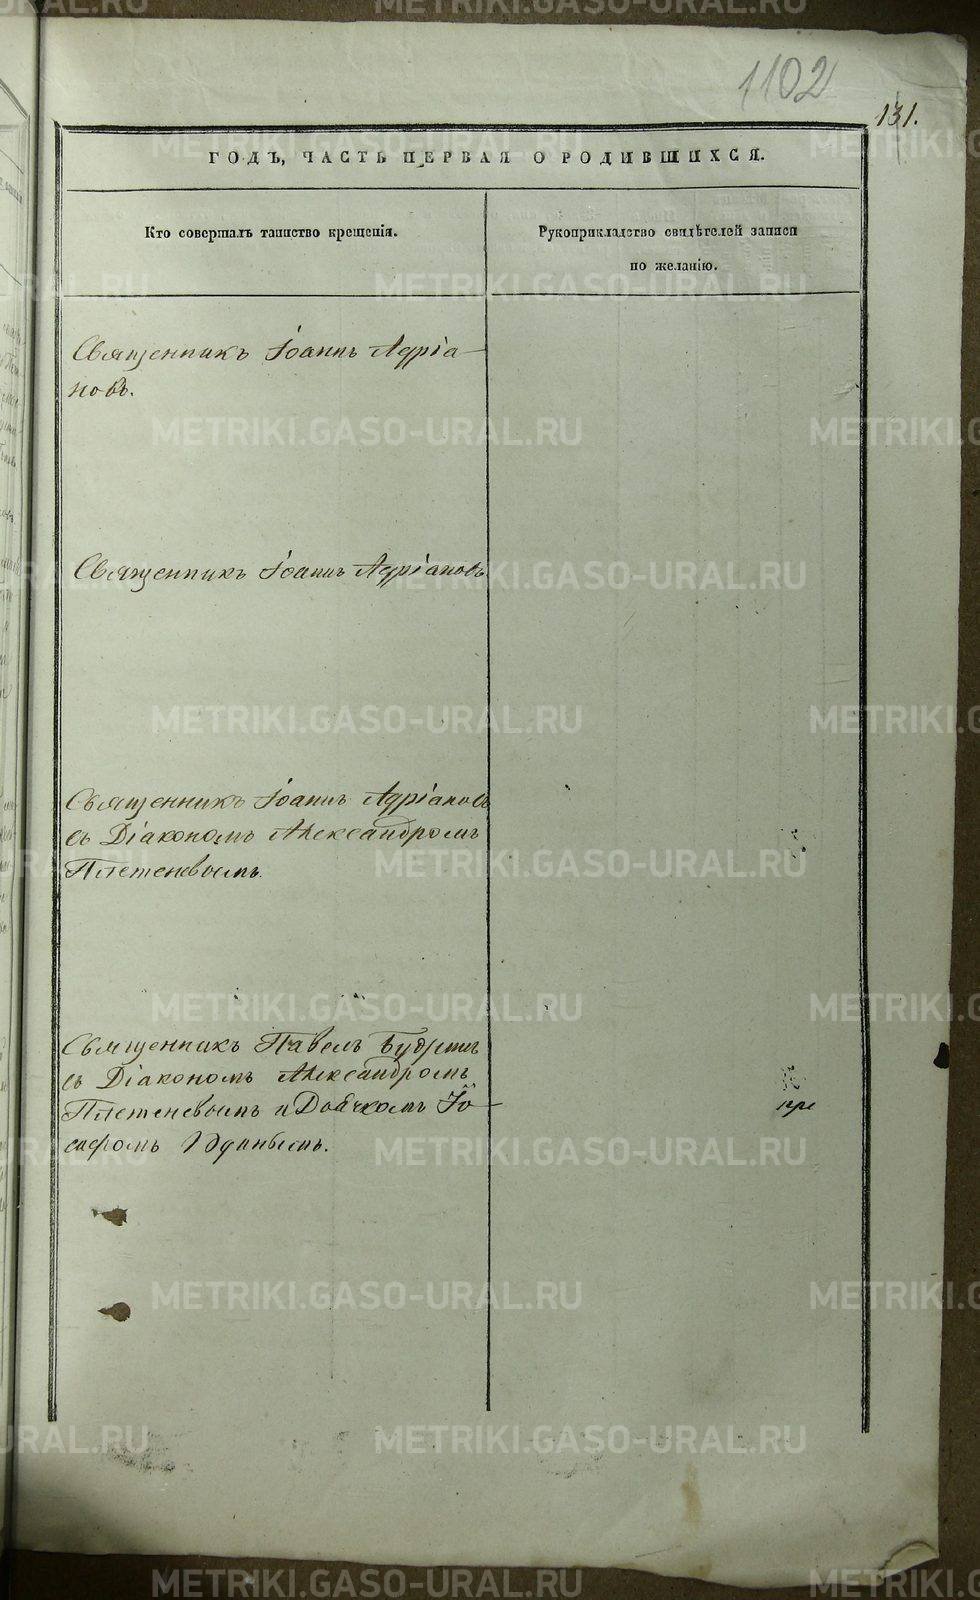 1102
131.
ГОДЪ, ЧАСТЬ ПЕРВАЯ О РОДИВШИХСЯ.
Кто совершалъ таинство крещенія.
Рукоприкладство свидѣтелей записи
по желанію.
Священникъ Іоаннъ Адріа-
новъ.
Священникъ Іоаннъ Адріановъ.
Священникъ Іоаннъ Адріановъ
съ Діакономъ Александромъ
Плетеневымъ.
Священникъ Павелъ Будринъ
съ Діакономъ Александромъ
Плетеневымъ и Дьячкомъ Іо-
сифомъ Юдинымъ.
METRIKI.GASO-URAL.RU